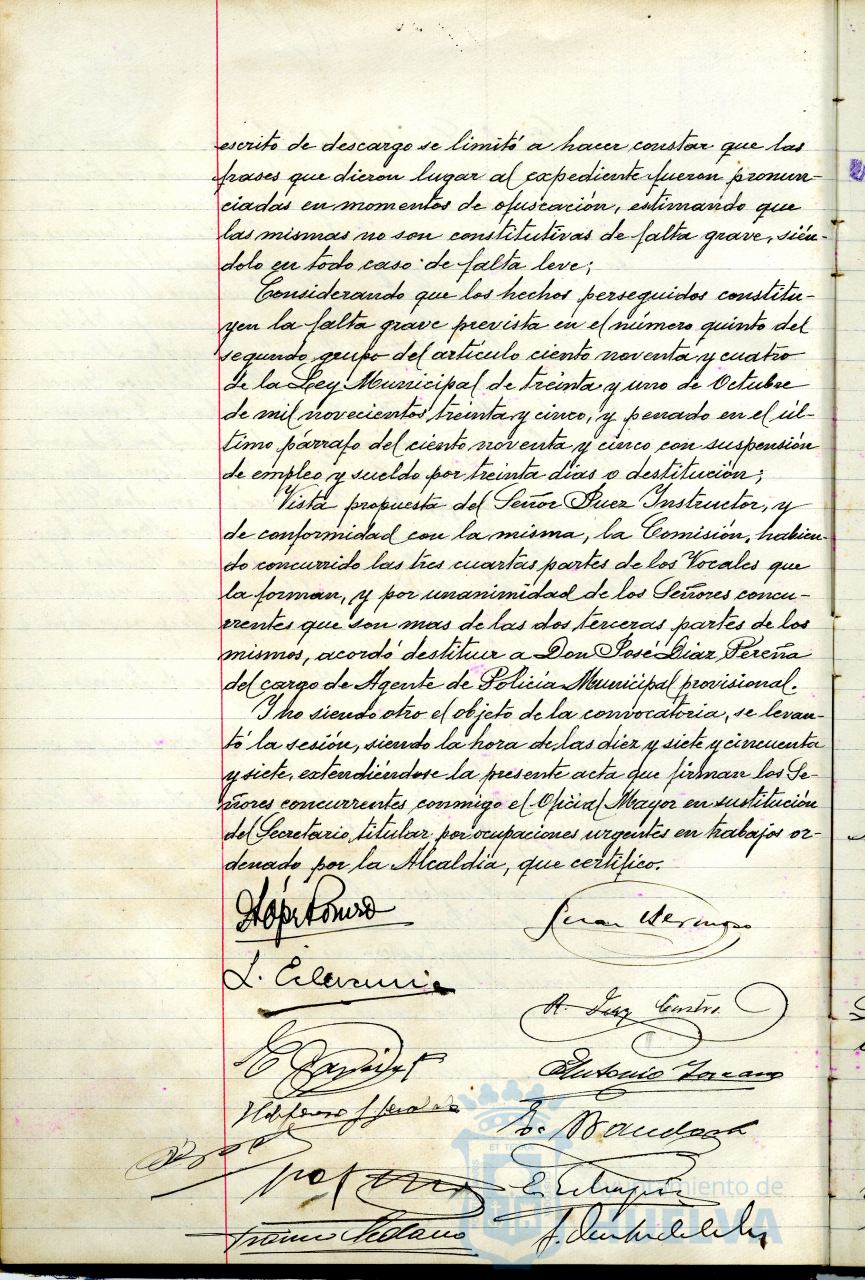 escrito de descargo se limitó a hacer constar que las
frases que dieron lugar al expediente fueron pronun-
ciadas en momentos de ofuscación, estimando que
las mismas no son constitutivas de falta grave, sién-
dolo en todo caso de falta leve;
Considerando que los hechos perseguidos constitu-
yen la falta grave prevista en el número quinto del
segundo grupo del artículo ciento noventa y cuatro
de la Ley Municipal de treinta y uno de Octubre
de mil novecientos treinta y cinco, y penado en el úl-
timo párrafo del ciento noventa y cinco con suspensión
de empleo y sueldo por treinta días o destitución;
Vista propuesta del Señor Juez Instructor, y
de conformidad con la misma, la Comisión, habien-
do concurrido las tres cuartas partes de los Vocales que
la forman, y por unanimidad de los Señores concu-
rrentes que son mas de las dos terceras partes de los
mismos, acordó destituir a Don José Diaz Pereña
del cargo de Agente de Policía Municipal provisional.
Y no siendo otro el objeto de la convocatoria, se levan-
tó la sesión, siendo la hora de las diez y siete y cincuenta
y siete, extendiéndose la presente acta que firman los Se-
ñores concurrentes conmigo el Oficial Mayor en sustitución
del Secretario titular por ocupaciones urgentes en trabajos or-
denado por la Alcaldía, que certifico.
Juan Hermoso
L.
A. Castro
Antonio
E.
Ayuntamiento de
HUELVA